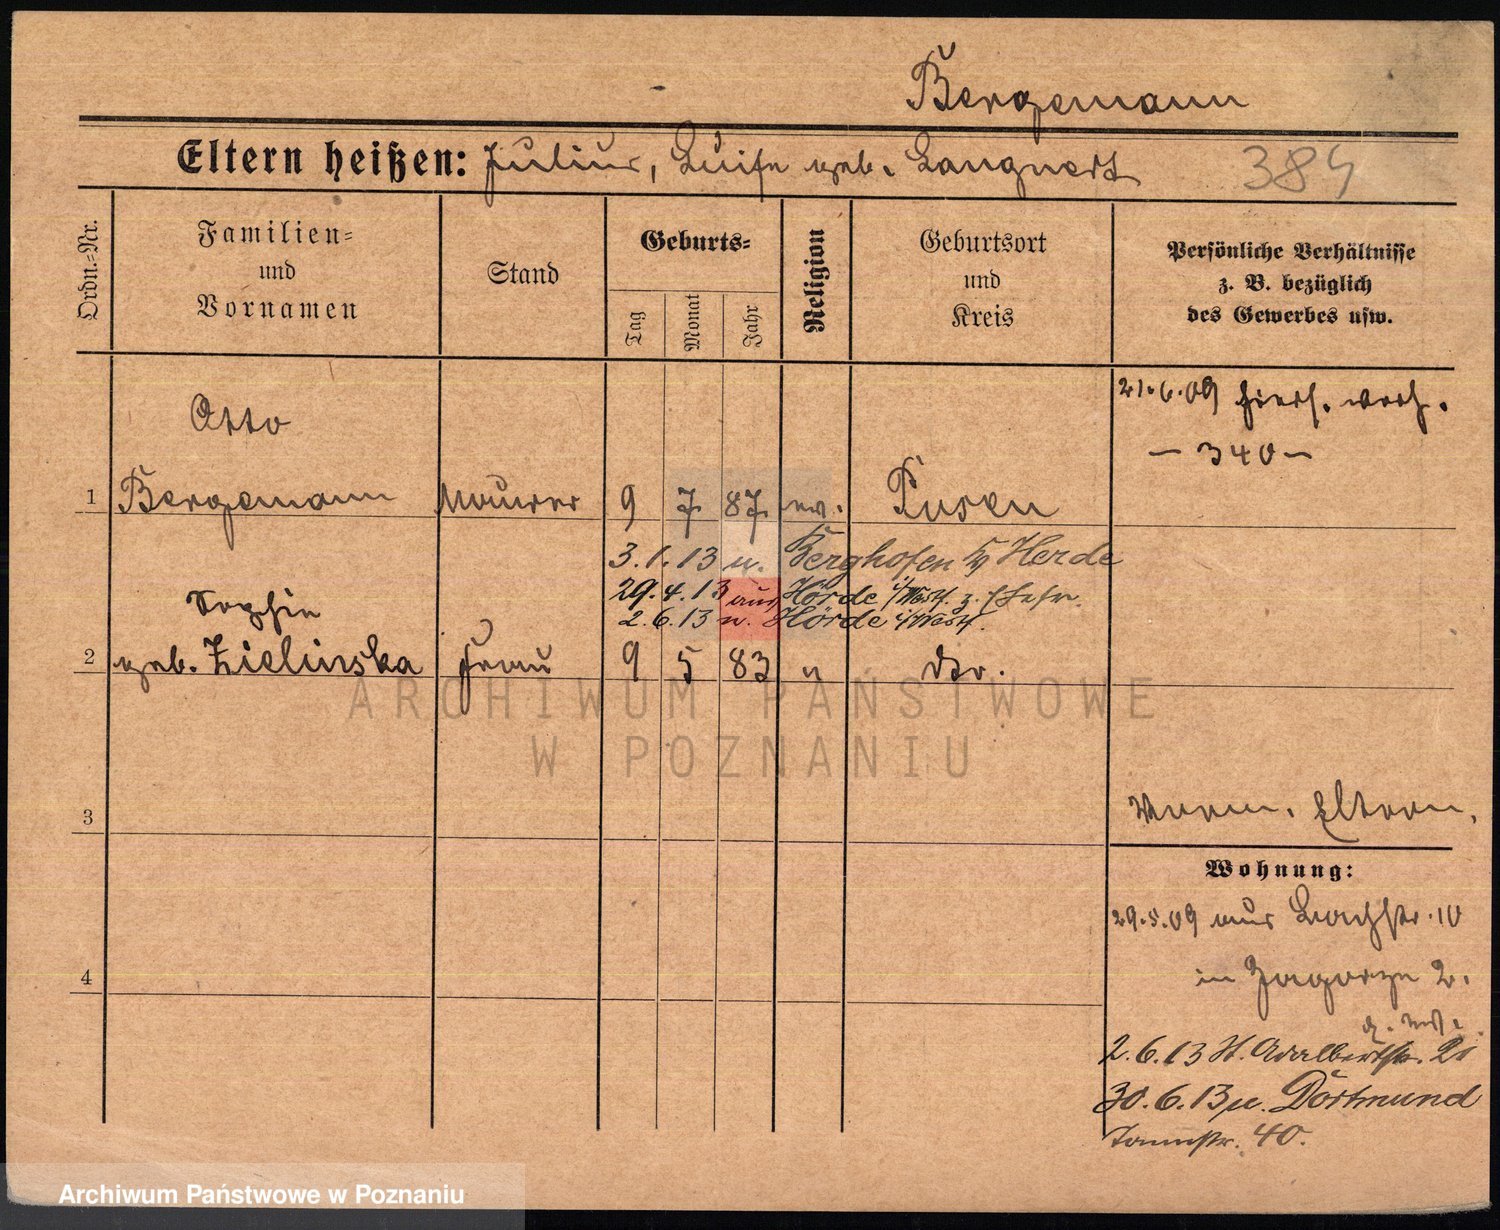 Bergemann
Eltern heißen: Julius, Luise geb. Langner
384
Ordn.-Nr.
Familien- und Vornamen
Stand
Geburts-
Tag
Monat
Jahr
Religion
Geburtsort und Kreis
Persönliche Verhältnisse z. B. bezüglich des Gewerbes usw.
21.6.09
- 340 -
Otto
1 Bergemann Maurer 9 7. 87. ev. Posen
3.1.13 n. Berghofen Herde
29.4.13 aus Hörde i/Westf. z.
2.6.13 n. Hörde i/Westf.
Sophie
2 geb. Zielinska Frau 9 5 83 do.
3
Eltern.
Wohnung:
29.5.09 aus Bachstr. 10
4
in Zagorze 2.
2.6.13 St. Adalbertstr. 21
30.6.13 n. Dortmund
Tannstr. 40.
ARCHIWUM PAŃSTWOWE
W POZNANIU
Archiwum Państwowe w Poznaniu